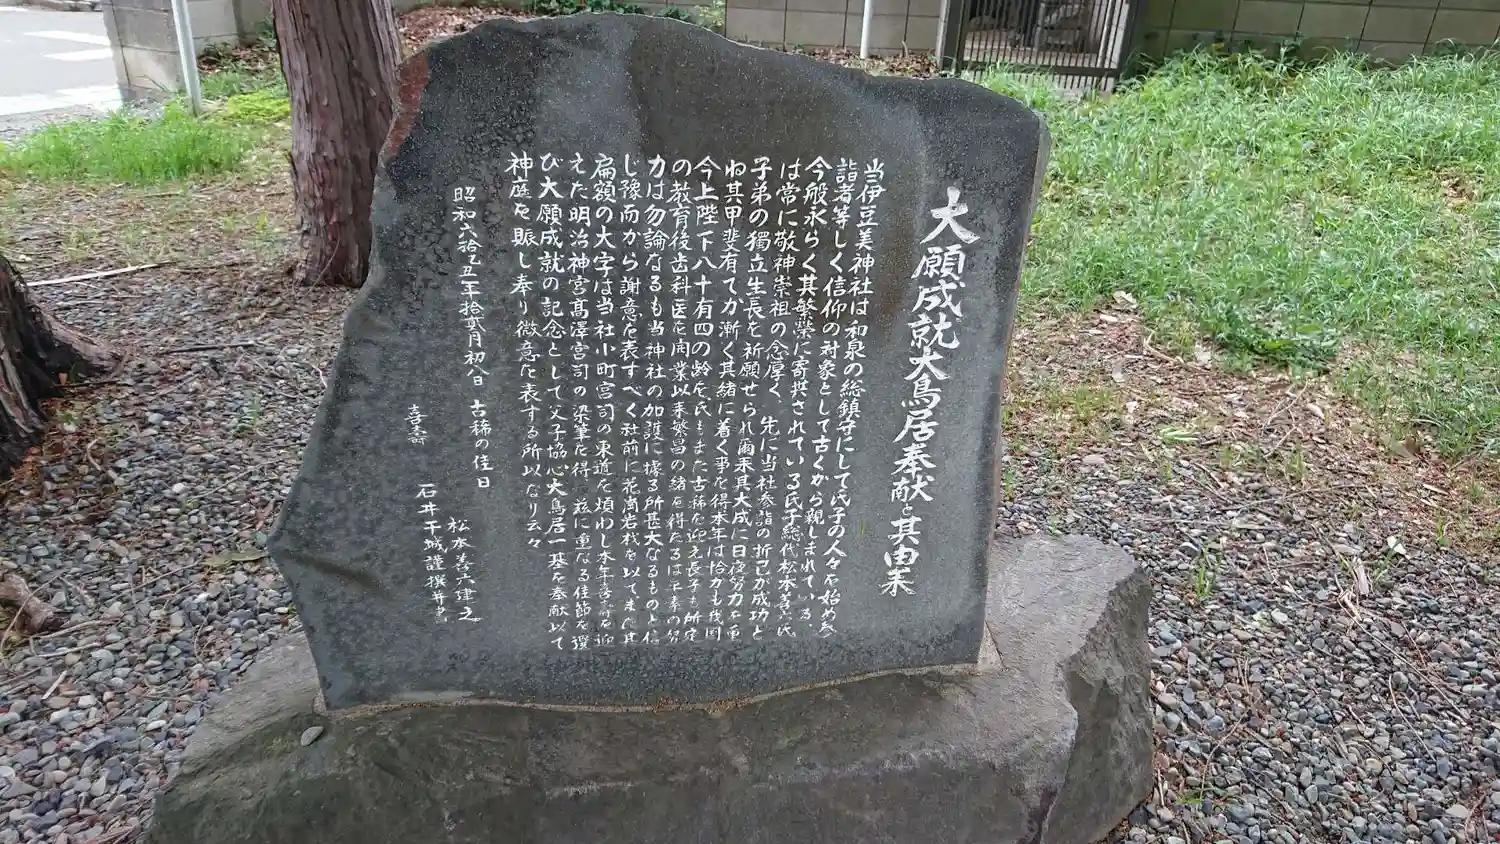 大願成就大鳥居奉献と其由来
当伊豆美神社は和泉の総鎮守にして氏子の人々を始め参
詣者等しく信仰の対象として古くから親しまれている
今般永らく其繁栄に寄与されている氏子総代松本善六氏
は常に敬神崇祖の念厚く、先に当社参詣の折己が成功と
子弟の獨立生長を祈願せられ爾来其大成に日夜努力を重
ね其甲斐有てか漸く其緒に着く事を得本年は恰かも我国
今上陛下八十有四の齢を、氏もまた古稀を迎え長子も所定
の教育後歯科医を開業以来繁昌の緒を得たるは平素の努
力は勿論なるも当神社の加護に據る所甚大なるものと信
じ豫而から謝意を表すべく社前に花崗岩材を以てまた其
扁額の大字は当社小町宮司の東道を煩わし本年喜壽を迎
えた明治神宮髙澤宮司の染筆を得、茲に重なる佳節を選
び大願成就の記念として父子協心大鳥居一基を奉献以て
神庭を賑し奉り微意を表する所以なり云々
昭和六拾乙丑年拾弐月初八日 古稀の佳日
松本善六建之
喜壽 石井千城謹撰并書